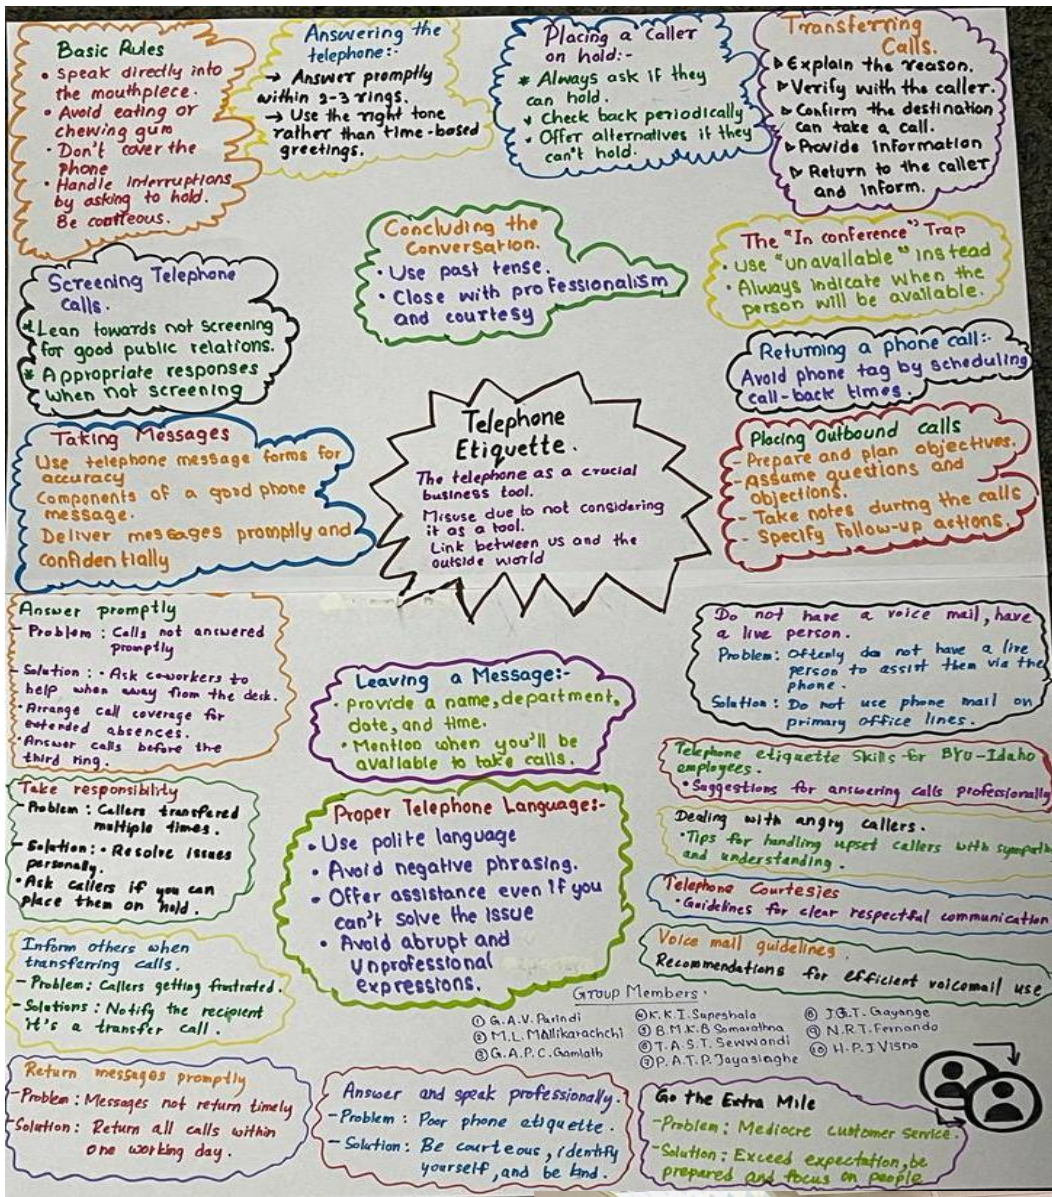 Basic Rules
• Speak directly into
the mouthpiece.
• Avoid eating or
chewing gum
• Don't cover the
phone
• Handle interruptions
by asking to hold.
Be courteous.
Answering the
telephone:-
→ Answer promptly
within 2-3 rings.
→ Use the right tone
rather than time-based
greetings.
Placing a caller
on hold:-
* Always ask if they
can hold.
✓ Check back periodically
✓ Offer alternatives if they
can't hold.
Transferring
Calls.
▷ Explain the reason.
▷ Verify with the caller.
▷ Confirm the destination
can take a call.
▷ Provide information
▷ Return to the caller
and inform.
Screening Telephone
Calls.
* Lean towards not screening
for good public relations.
* Appropriate responses
when not screening
Concluding the
Conversation.
• Use past tense.
• Close with professionalism
and courtesy
The "In conference" Trap
• use "unavailable" instead
• Always indicate when the
person will be available.
Returning a phone call:-
Avoid phone tag by scheduling
call-back times.
Taking Messages
Use telephone message forms for
accuracy
Components of a good phone
message.
Deliver messages promptly and
confidentially
Telephone
Etiquette.
The telephone as a crucial
business tool.
Misuse due to not considering
it as a tool.
Link between us and the
outside world
Placing Outbound calls
- Prepare and plan objectives.
- Assume questions and
objections.
- Take notes during the calls
- Specify follow-up actions.
Answer promptly
- Problem : Calls not answered
promptly
- Solution : • Ask co-workers to
help when away from the desk.
• Arrange call coverage for
extended absences.
• Answer calls before the
third ring.
Leaving a Message:-
• Provide a name, department,
date, and time.
• Mention when you'll be
available to take calls.
Do not have a voice mail, have
a live person.
Problem: Oftenly do not have a live
person to assist them via the
phone.
Solution : Do not use phone mail on
primary office lines.
Telephone etiquette Skills for BYU-Idaho
employees.
• Suggestions for answering calls professionally
Take responsibility
- Problem : Callers transfered
multiple times.
- Solution : • Resolve issues
personally.
• Ask callers if you can
place them on hold.
Proper Telephone Language:-
• Use polite language
• Avoid negative phrasing.
• Offer assistance even if you
can't solve the issue
• Avoid abrupt and
unprofessional
expressions.
Dealing with angry callers.
• Tips for handling upset callers with sympath
and understanding.
Telephone Courtesies
• Guidelines for clear respectful communication
Voice mail guidelines.
Recommendations for efficient voicemail use
Inform others when
transferring calls.
- Problem: Callers getting frustrated.
- Solutions: Notify the recipient
it's a transfer call.
Group Members.
① G.A.V. Parindi
② M.L. Mallikarachchi
③ G.A.P.C. Gamlath
④ K.K.I. Supeshala
⑤ B.M.K.B Somarathna
⑥ T.A.S.T. Sewwandi
⑦ P.A.T.P. Jayasinghe
⑧ J.G.T. Gayange
⑨ N.R.T. Fernando
⑩ H.P.J Visna
Return messages promptly
- Problem: Messages not return timely
- Solution: Return all calls within
one working day.
Answer and speak professionally.
- Problem : Poor phone etiquette.
- Solution : Be courteous, identify
yourself, and be kind.
Go the Extra Mile
- Problem: Mediocre customer service.
- Solution: Exceed expectation, be
prepared and focus on people